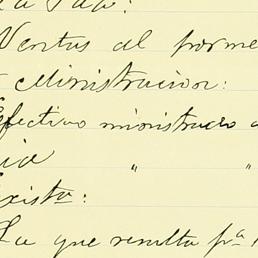 Ventas al porme
Ministracion:
Efectivo ministrado a
" "
Exista:
La que resulta pa